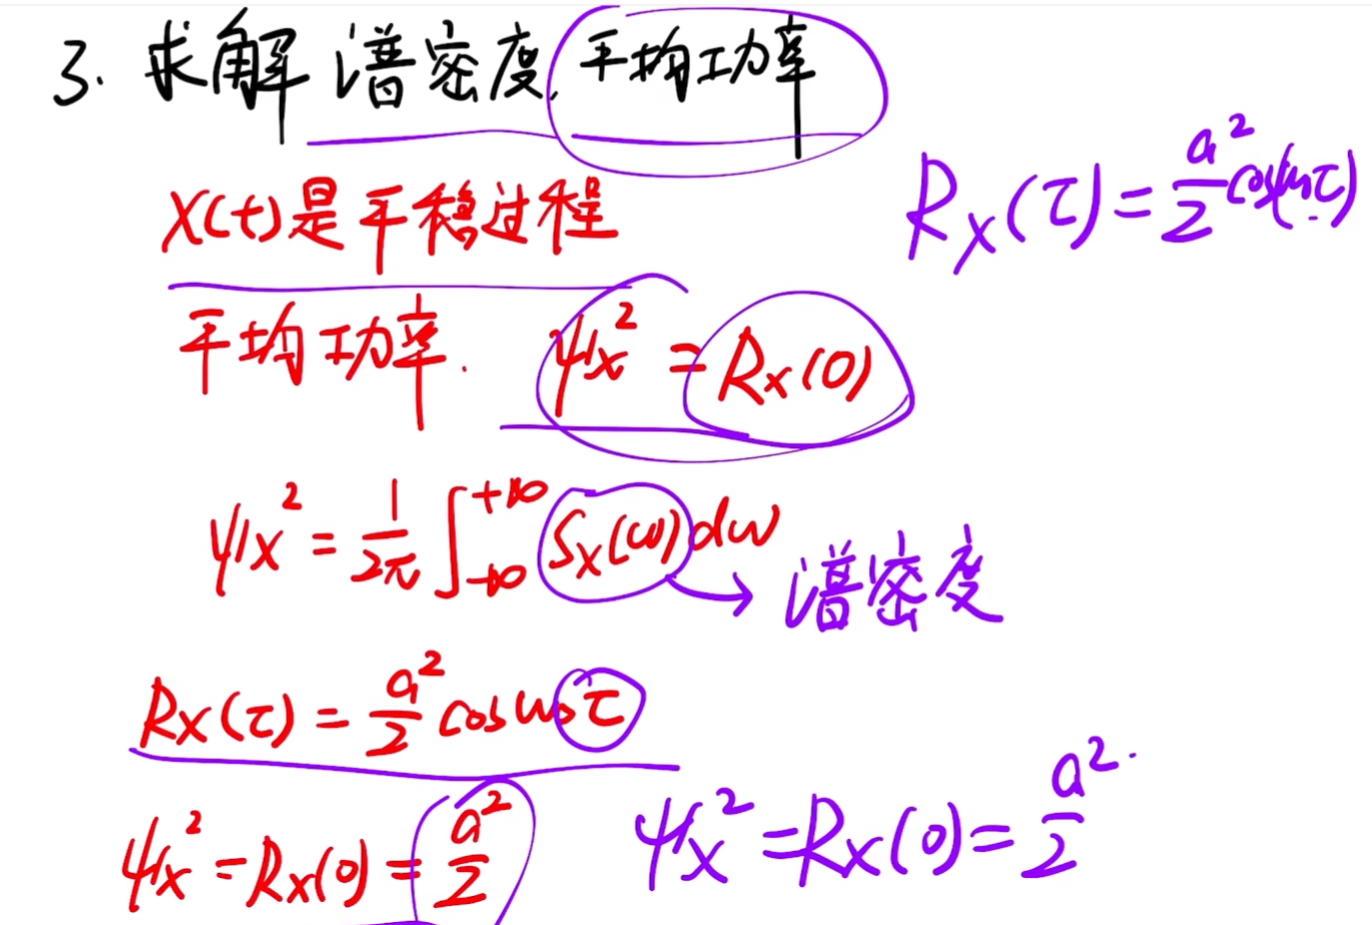 3. 求解 谱密度, 平均功率
X(t)是平稳过程
R_X(τ) = a²/2 cos(ω₀τ)
平均功率. ψ_X² = R_X(0)
ψ_X² = 1/2π ∫_{-∞}^{+∞} S_X(ω)dω → 谱密度
R_X(τ) = a²/2 cos ω₀τ
ψ_X² = R_X(0) = a²/2
ψ_X² = R_X(0) = a²/2